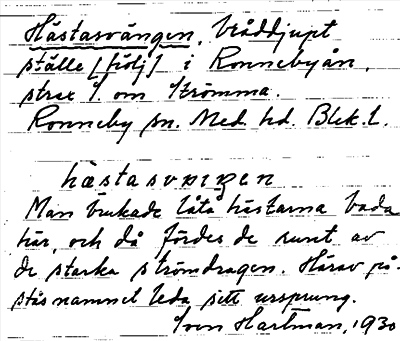 Hästasvängen, bråddjupt
ställe [hölj] i Ronnebyån,
strax S. om Strömma.
Ronneby sn. Med. hd. Blek. l.
hæstasvæŋen
Man brukade låta hästarna bada
här, och då fördes de runt av
de starka strömdragen. Härav på-
stås namnet leda sitt ursprung.
Hartman, 1930